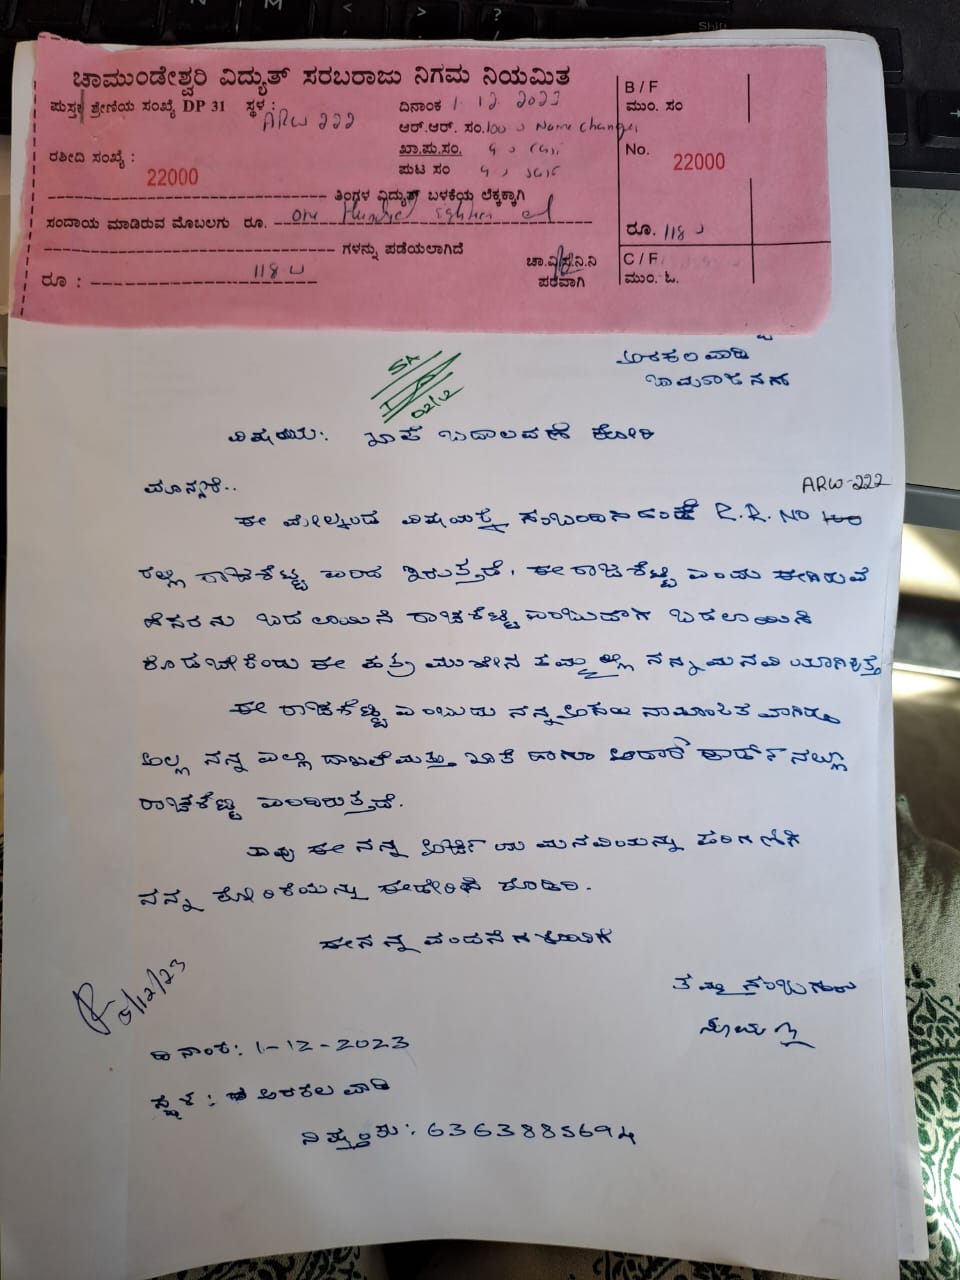 ಚಾಮುಂಡೇಶ್ವರಿ ವಿದ್ಯುತ್ ಸರಬರಾಜು ನಿಗಮ ನಿಯಮಿತ
ಪುಸ್ತಕ ಶ್ರೇಣಿಯ ಸಂಖ್ಯೆ DP 31 ಸ್ಥಳ : ARW 222
ದಿನಾಂಕ 1.12.2023
ಆರ್.ಆರ್. ಸಂ. Name Changes
ಖಾ.ಪು.ಸಂ.
ಪುಟ ಸಂ
ರಶೀದಿ ಸಂಖ್ಯೆ : 22000
ತಿಂಗಳ ವಿದ್ಯುತ್ ಬಳಕೆಯ ಲೆಕ್ಕಕ್ಕಾಗಿ
ಸಂದಾಯ ಮಾಡಿರುವ ಮೊಬಲಗು ರೂ. one Hundred
ಗಳನ್ನು ಪಡೆಯಲಾಗಿದೆ
ರೂ : 118
ಚಾ.ವಿ.ಸ.ನಿ.ನಿ
ಪರವಾಗಿ
B / F
ಮುಂ. ಸಂ
No. 22000
ರೂ. 118
C / F
ಮುಂ. ಓ.
ಅರಕಲವಾಡಿ
ಚಾಮರಾಜನಗರ
SA
02/12
ವಿಷಯ: ಖಾತೆ ಬದಾಲವಣೆ ಕೋರಿ
ಮಾನ್ಯರೆ..
ARW-222
ಈ ಮೇಲ್ಕಂಡ ವಿಷಯಕ್ಕೆ ಸಂಬಂಧಿಸಿದಂತೆ R.R. NO 100
ರಲ್ಲಿ ರಾಜಶೆಟ್ಟಿ ಎಂದು ಇರುತ್ತದೆ. ಈ ರಾಜಶೆಟ್ಟಿ ಎಂದು ಈಗಿರುವ
ಹೆಸರನು ಬದಲಾಯಿಸಿ ರಾಚಶೆಟ್ಟಿ ಎಂಬುದಾಗಿ ಬದಲಾಯಿಸಿ
ಕೊಡಬೇಕೆಂದು ಈ ಪತ್ರ ಮುಖೇನ ತಮ್ಮಲ್ಲಿ ನನ್ನ ಮನವಿ ಯಾಗಿರುತ್ತೆ
ಈ ರಾಜಶೆಟ್ಟಿ ಎಂಬುದು ನನ್ನ
ನನ್ನ ಎಲ್ಲಾ ದಾಖಲೆ ಮತ್ತು ಖಾತೆ ಹಾಗೂ ಆಧಾರ್ ಕಾರ್ಡ್ ನಲ್ಲೂ
ರಾಚಶೆಟ್ಟಿ ಎಂದಿರುತ್ತದೆ.
ತಾವು ಈ ನನ್ನ ಅರ್ಜಿಯ ಮನವಿಯನ್ನು ಪರಿಗಣಿಸಿ
ನನ್ನ ಕೋರಿಕೆಯನ್ನು ಈಡೇರಿಸಿ ಕೊಡಿರಿ.
ಈ ನನ್ನ ವಂದನೆಗಳೊಂದಿಗೆ
ತಮ್ಮ ನಂಬುಗೆಯ
5/12/23
ದಿನಾಂಕ: 1-12-2023
ಸ್ಥಳ: ಅರಕಲವಾಡಿ
6363885694